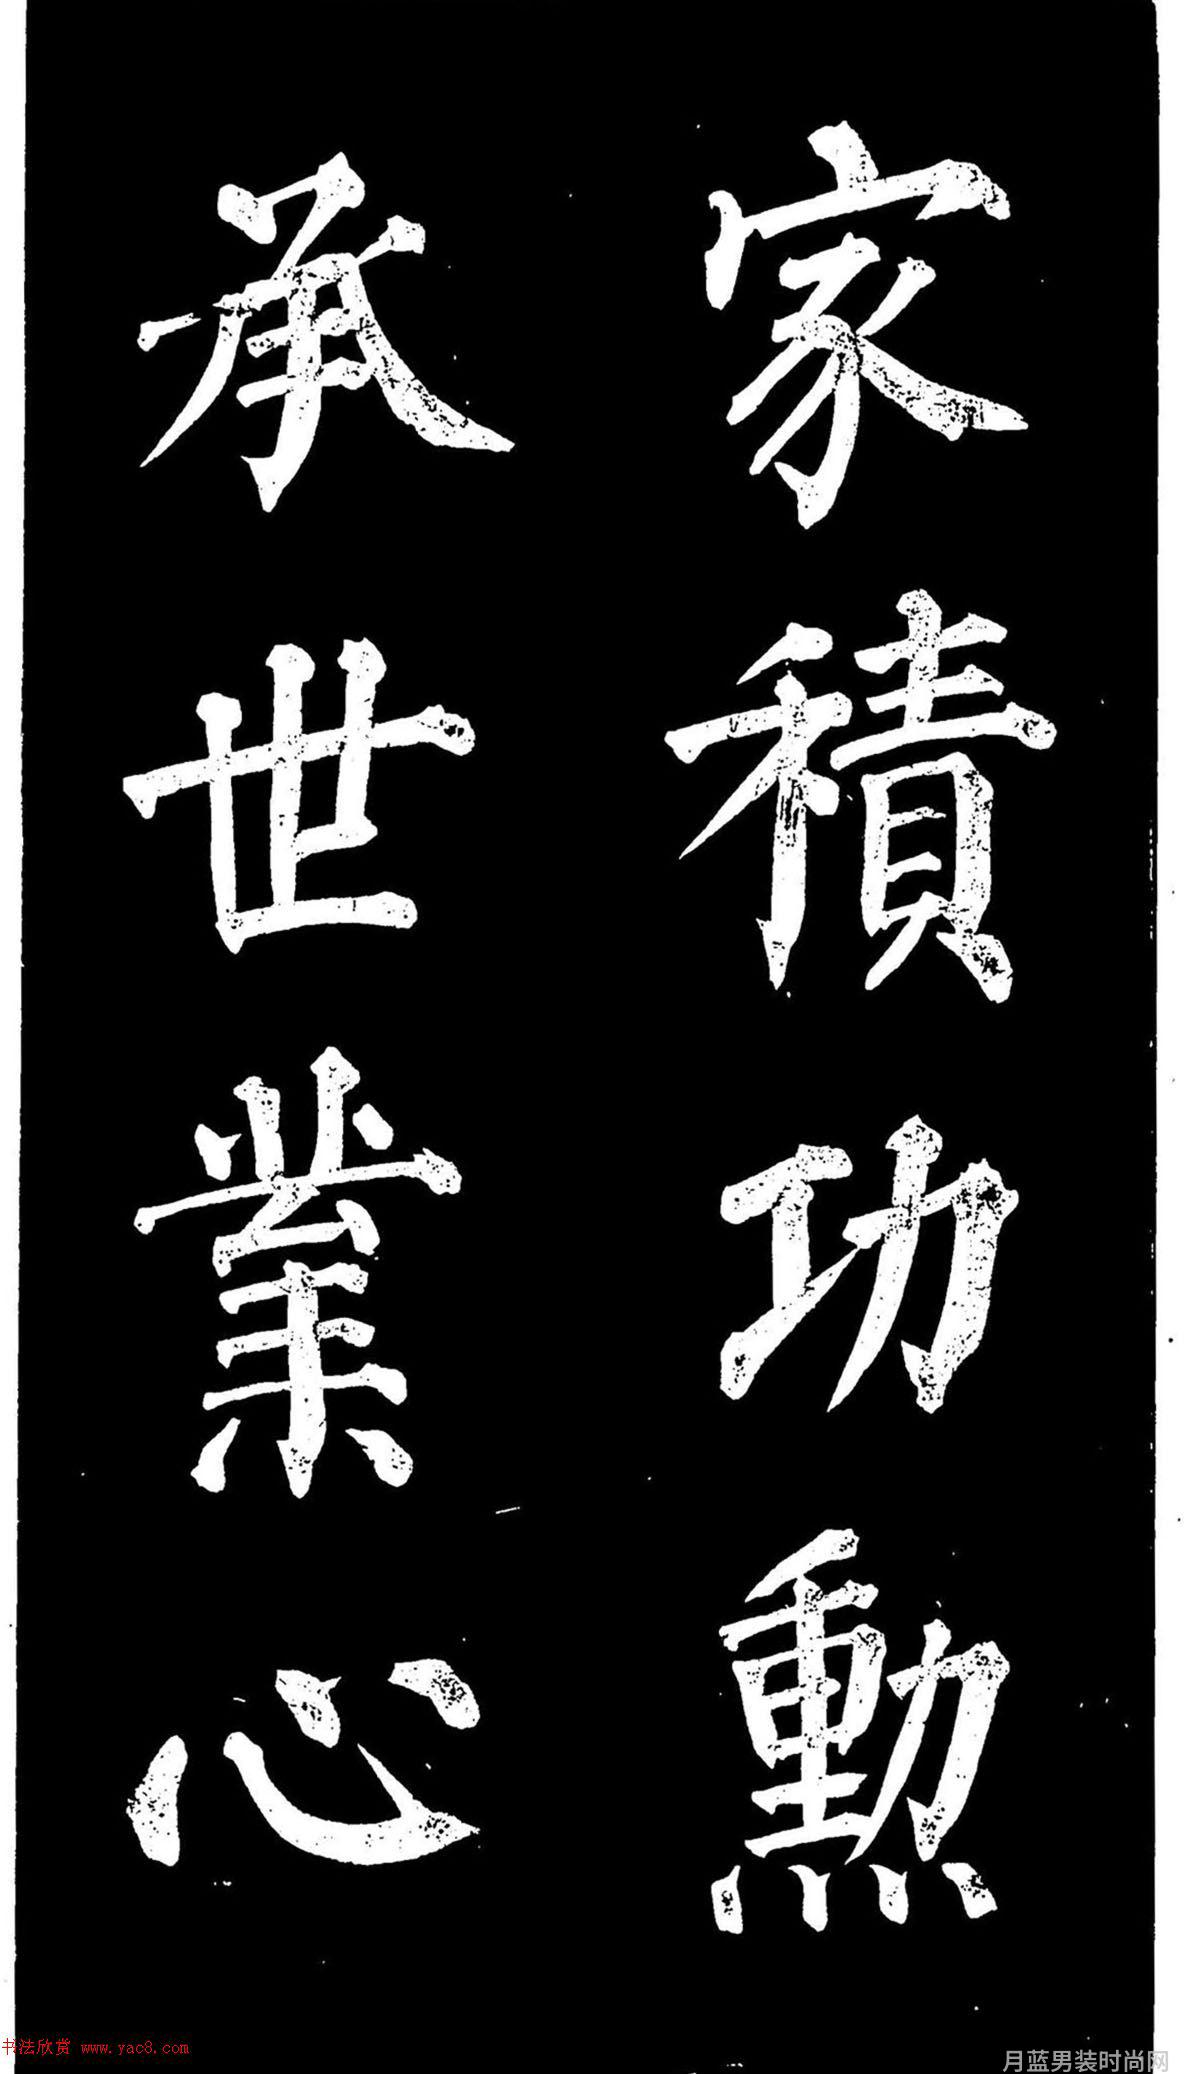 家積功勲
承世業心
书法欣赏 www.yac8.com
月蓝男装时尚网